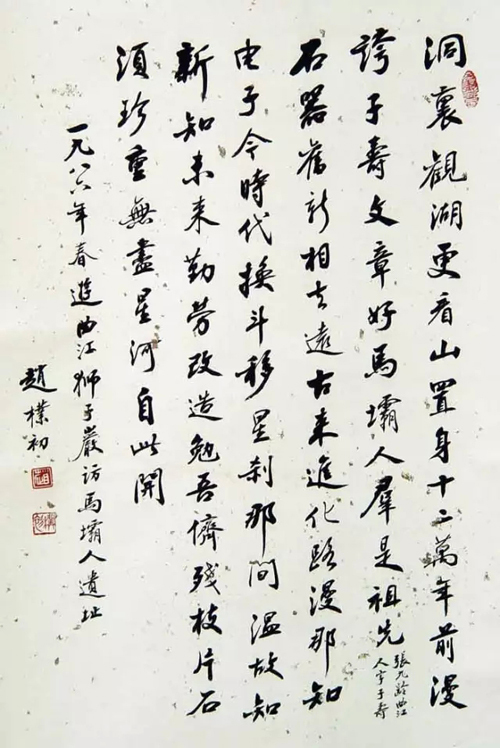 洞裏觀湖更看山置身十二萬年前漫
誇子壽文章好馬壩人羣是祖先
張九齡曲江
人字子壽
石器舊新相去遠古来進化路漫那知
电子今時代換斗移星刹那间温故知
新知未来勤劳改造勉吾儕殘枝片石
須珍重無盡星河自此開
一九八六年春遊曲江獅子巖访馬壩人遺址
趙樸初